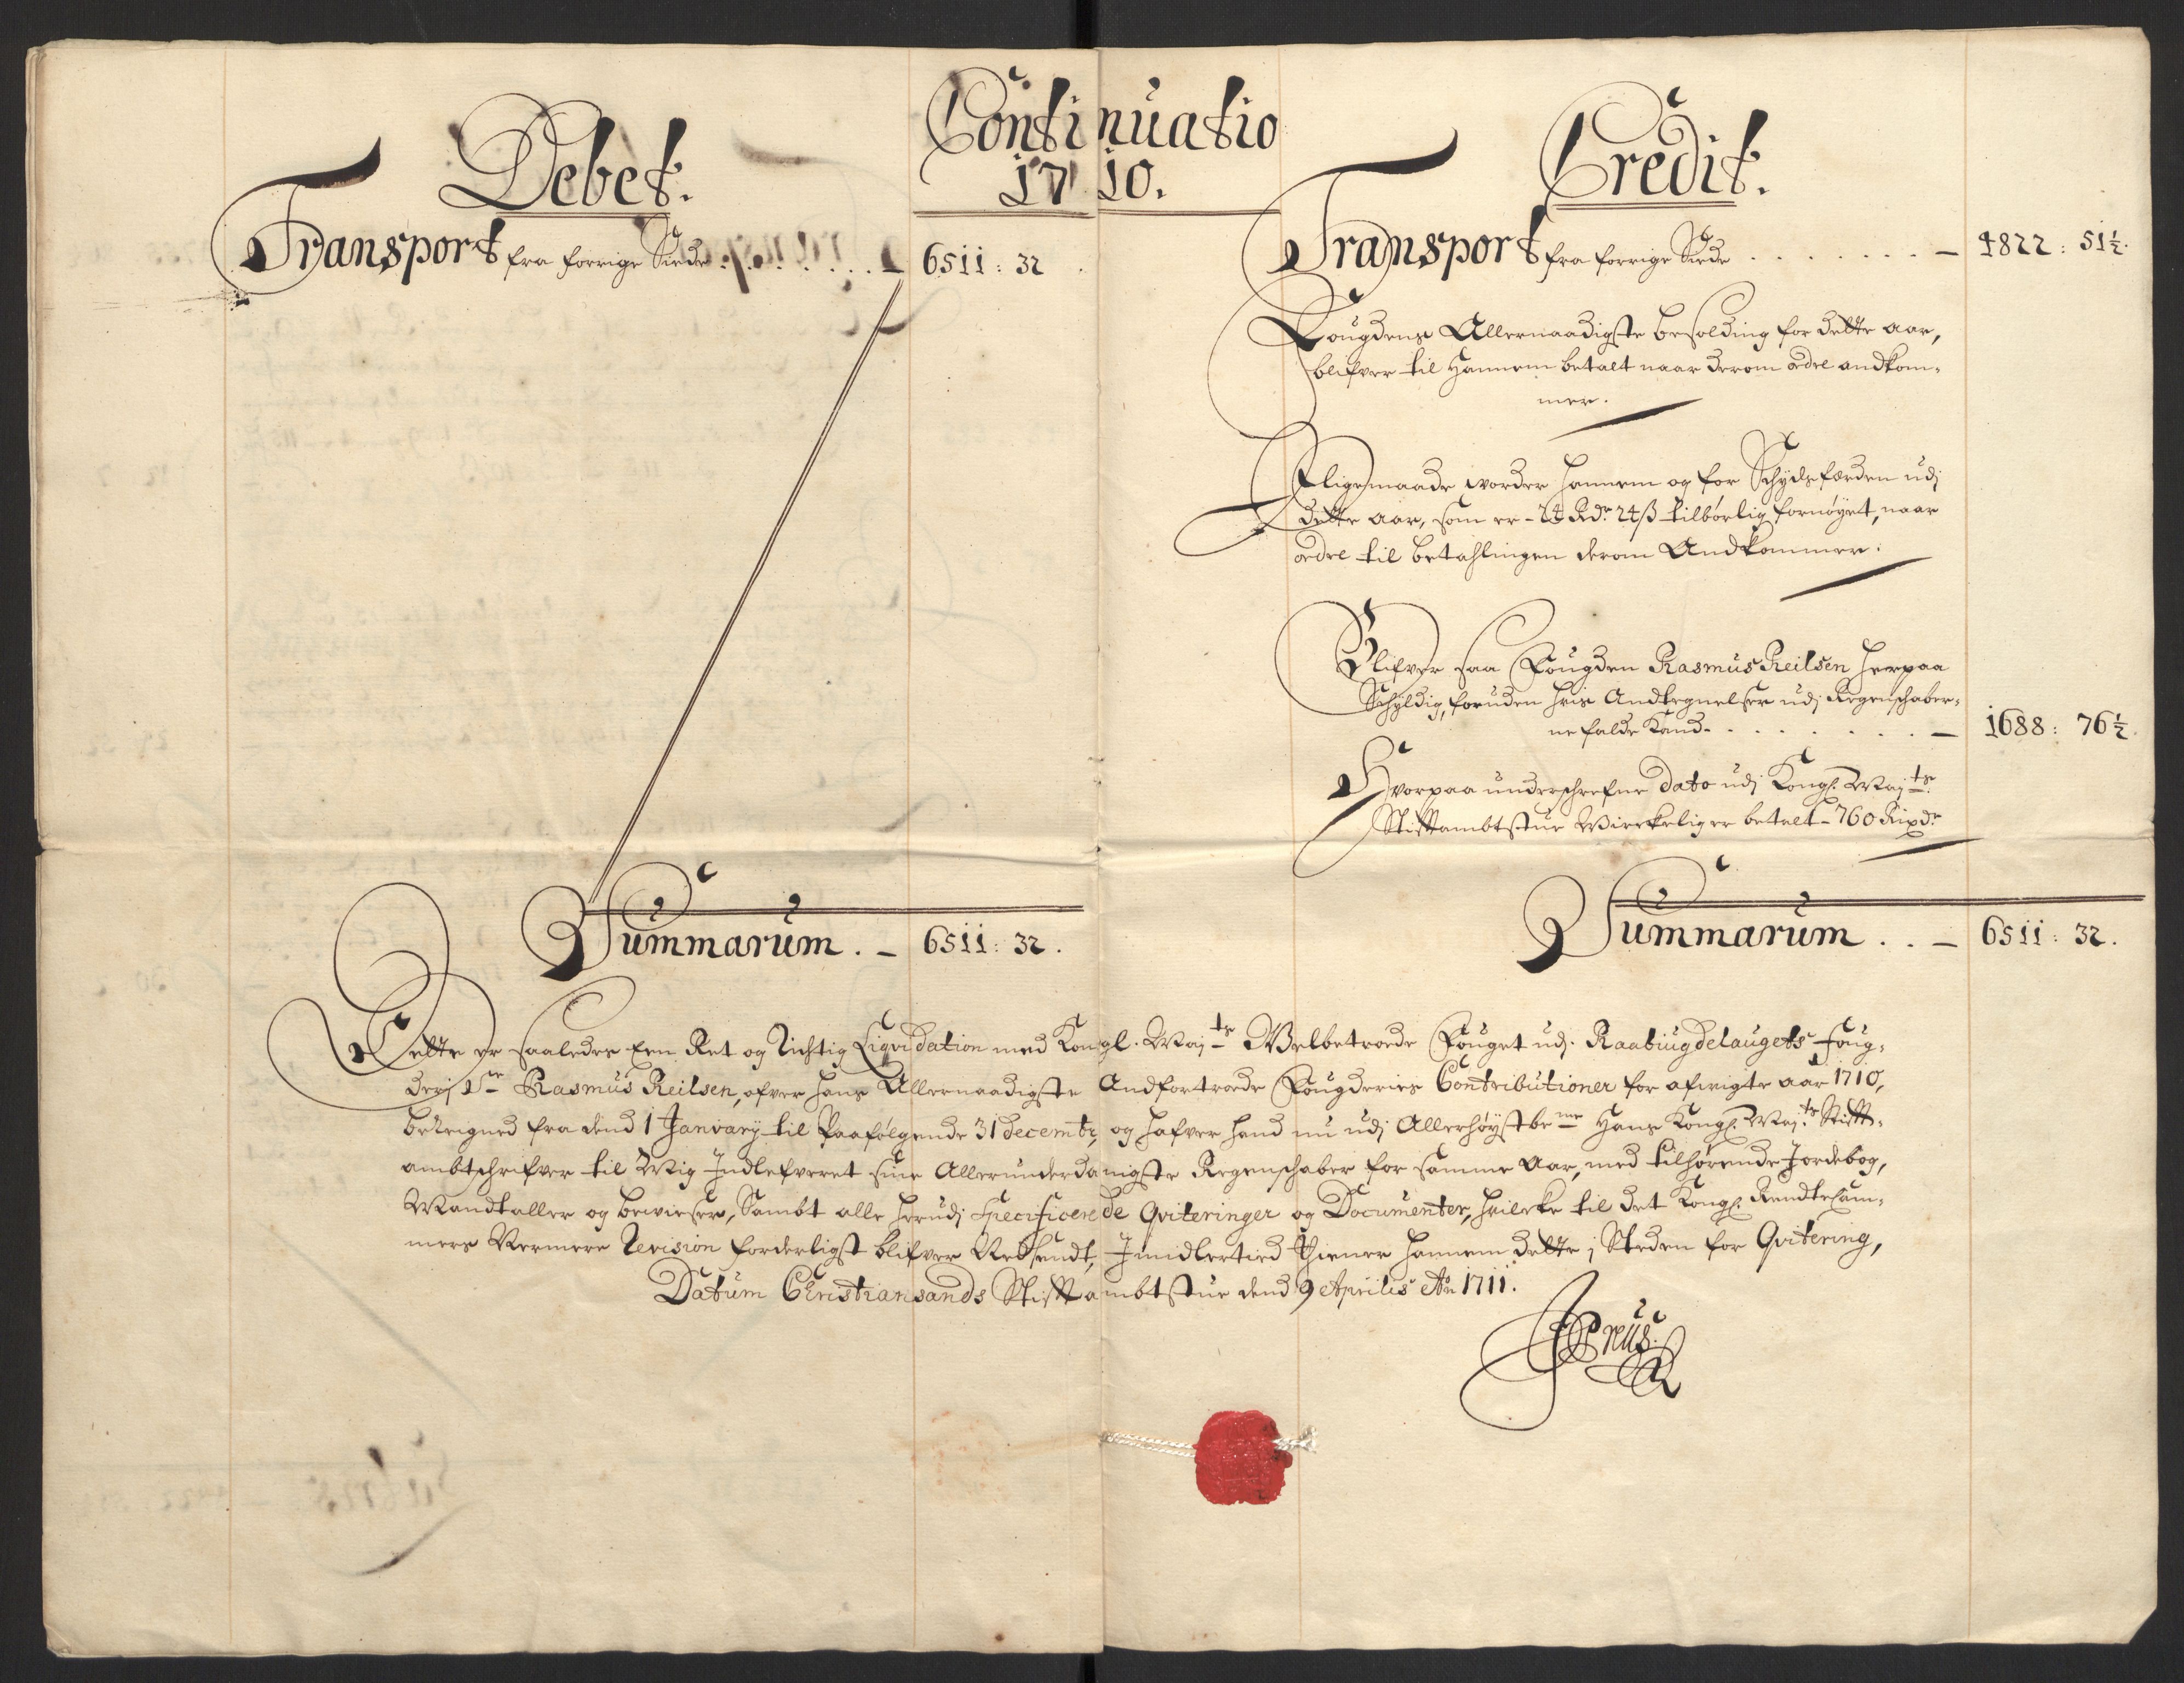 Continuatio
1710.
Debet.
Transport fra forrige Siede . . . . . . – 6511 : 32
Summarum . – 6511 : 32 .
Credit.
Transport fra forrige Siede . . . . . . . – 4822 : 51½.
Fougdens Allernaadigste besolding for dette aar,
blifver til hannem betalt naar derom ordre andkom-
mer.
Iligemaade worder hannem og for Schydsfærden udj
dette aar, som er - 24 Rdr 24 ß tilbørlig fornøyet, naar
ordre til betahlingen derom Andkommer.
Blifver saa Fougden Rasmus Reilsen herpaa
Schyldig, foruden hvis Andtegnelser udj Regenschaber-
ne falde kand. . . . . . . . . – 1688 : 76½.
Hvorpaa underschrefne dato udj Kongl. Maj.ts
Stiftambtstue Wirckelig er betalt - 760 Rixdr
Summarum . . – 6511 : 32 .
Dette er saaledes Een Ret og Rictig Liqvidation med Kongl. Maj.ts Welbetroede Fouget udj Raabiugdelaugets Foug-
derj Sr Rasmus Reilsen, ofver hans Allernaadigste Andfortroede Fougderies Contributioner for afvigte aar 1710,
beregned fra dend 1 Januarij til Paafølgende 31 decembr, og hafver hand nu udj Allerhøystbeme Hans Kongl. Maj.ts Stift-
ambtschrifver til Mig Indlefveret sine Allerunderdanigste Regenschaber for samme Aar, med tilhørende Jordebog,
Mandtaller og bewiser, Sambt alle herudj Specificerede Qviteringer og Documenter, hvilcke til det Kongl. Rendtekam-
mers Nermere Revision forderligst blifver Nedsendt, Imidlertid Thiener hannem dette j Steden for Qvitering,
Datum Christiansands Stiftambtstue dend 9 Aprilis Ao 1711.